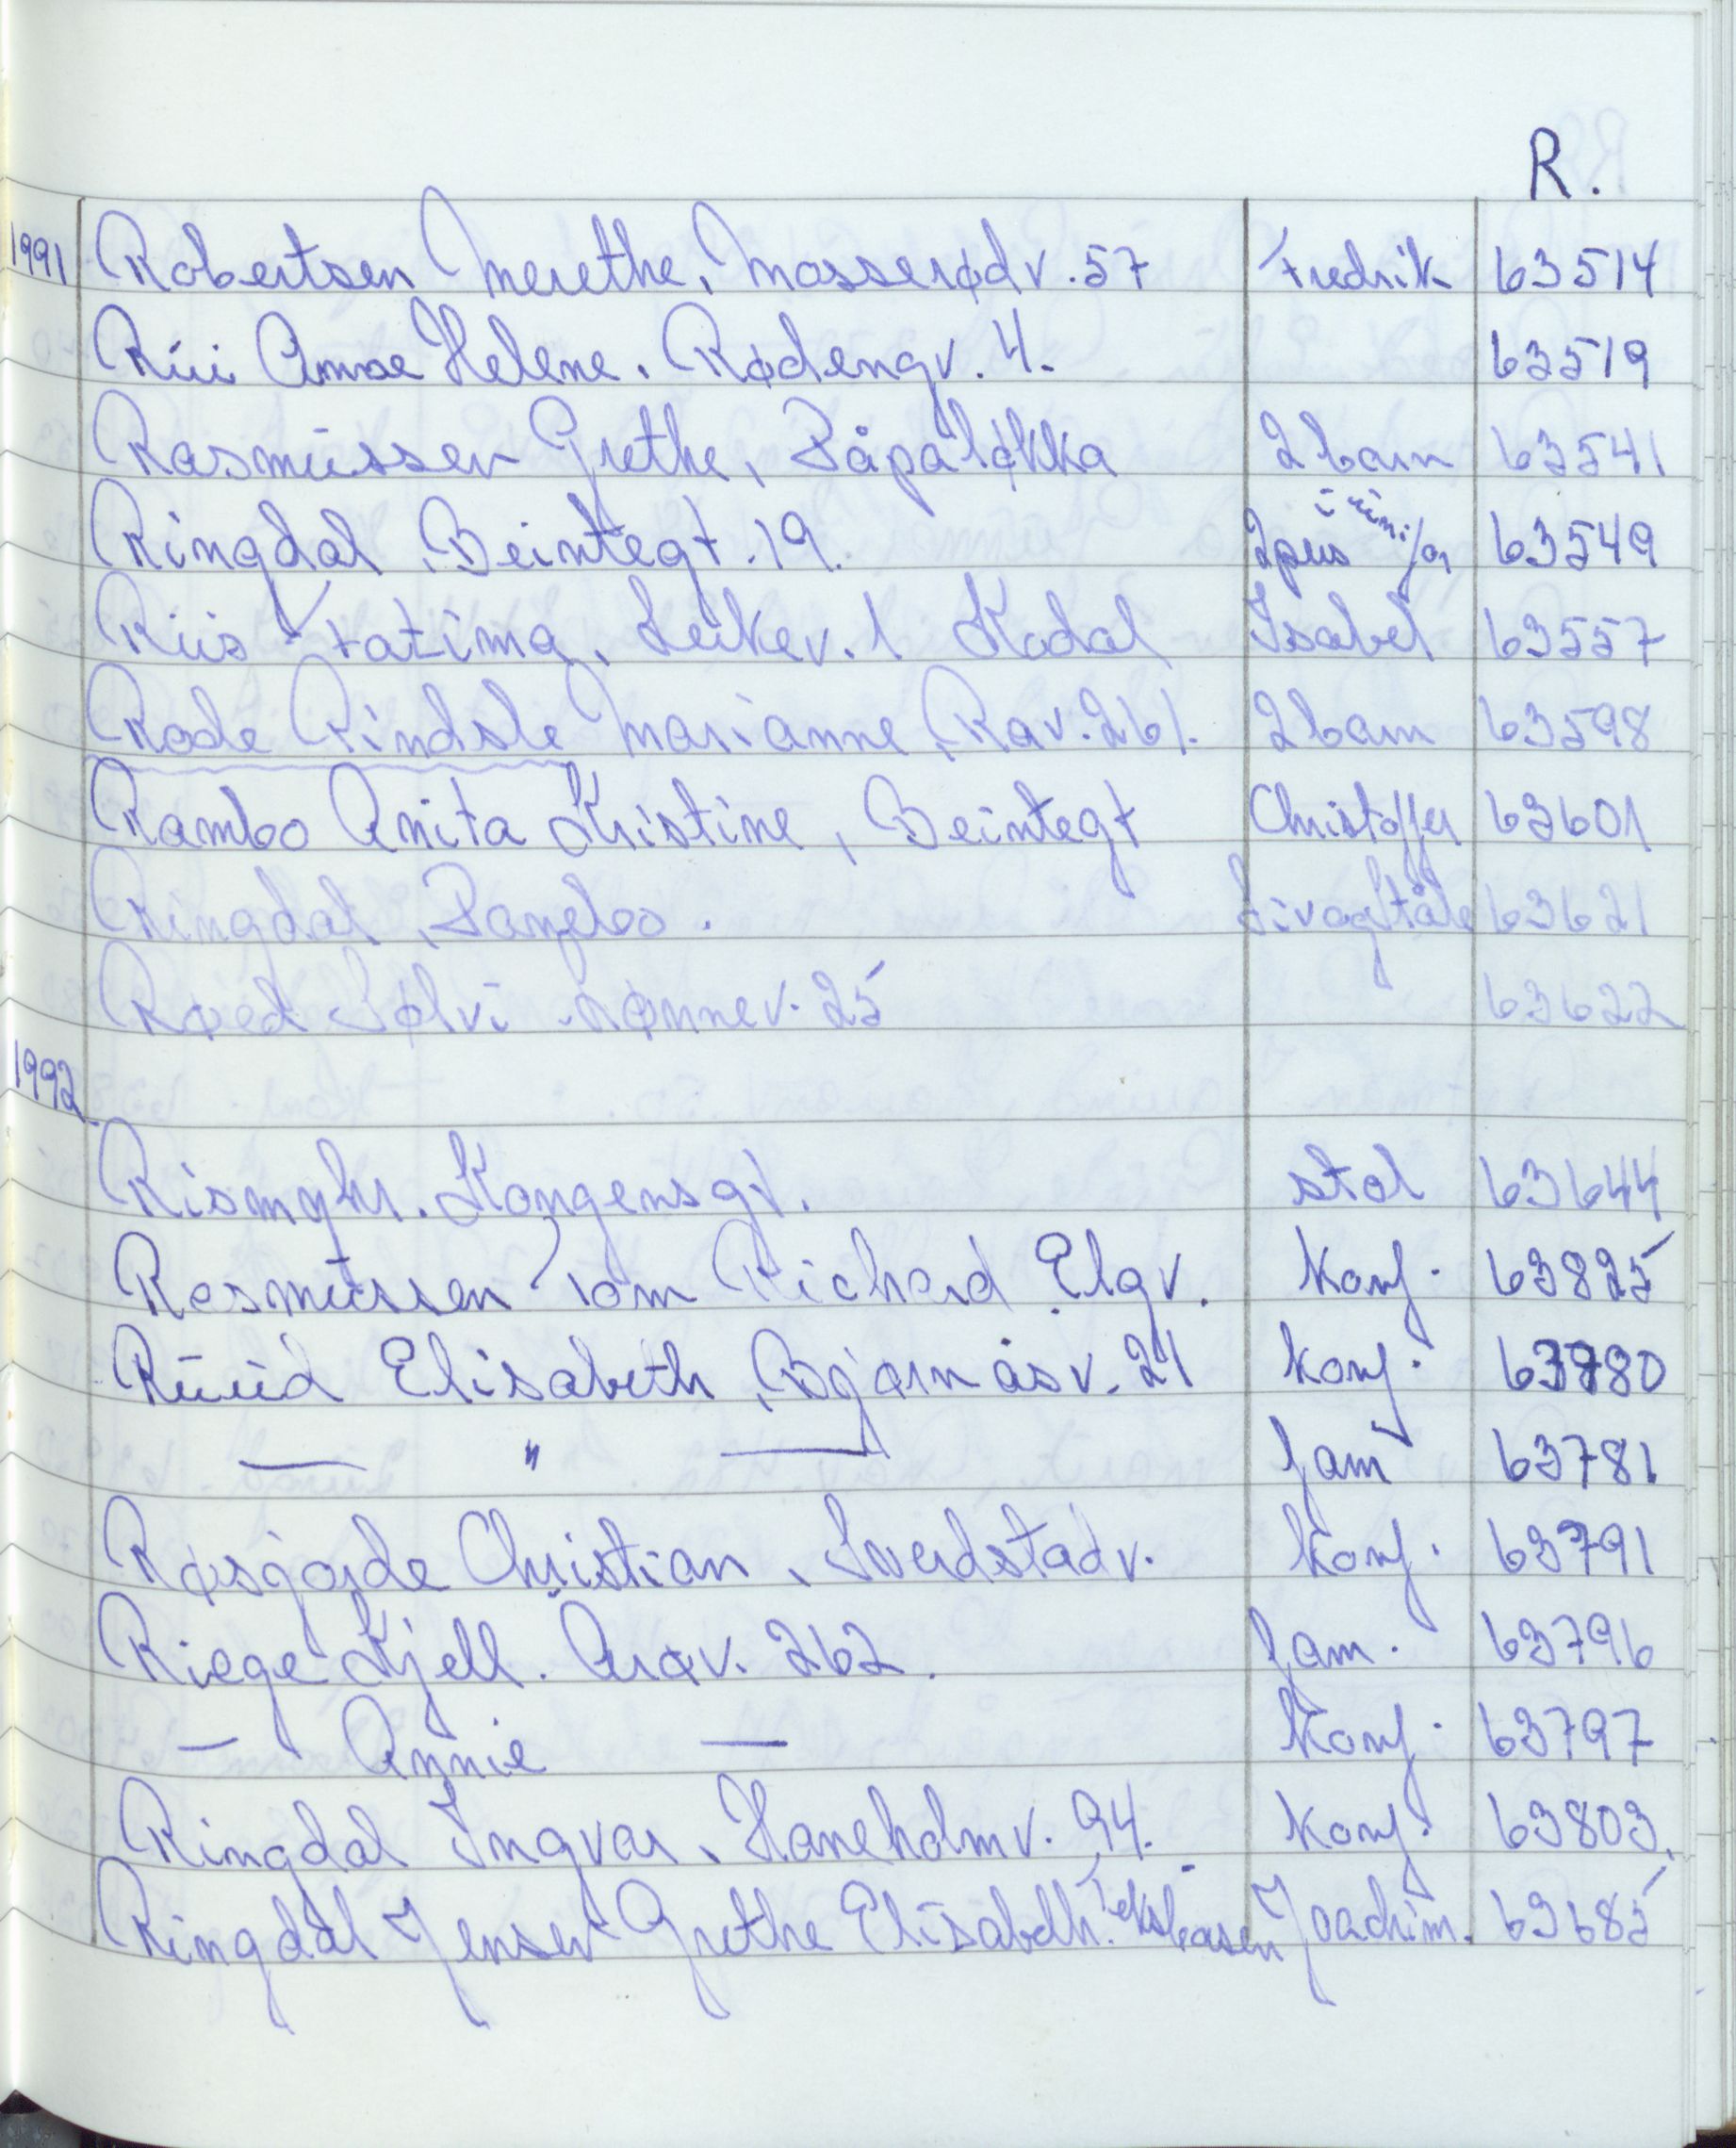 R.
1991 Robertsen Merethe, Mosserødv. 57 Fredrik 63514
Rui Anne Helene. Rødengv. 4. 63519
Rasmussen Grethe, Påpåløkka 2 barn 63541
Ringdal, Beintegt. 19. 2 pers 63549
Riis Fatima, Leikev. 1 Kodal Isabel 63557
Rode Rindsle Marianne, Rav. 261. 2 barn 63598
Rambo Anita Kristine, Beintegt Christoffer 63601
Ringdal, 63621
Røed Sølvi Lønnev. 25 63622
1992
Rismyhr. Kongensgt. stol 63644
Rasmussen Tom Richard Elgv. Konf. 63825
Ruud Elisabeth, Bjørnåsv. 21 Konf. 63780
— " — fam 63781
Røsgorde Christian, Sverdstadv. Konf. 63791
Riege Kjell. Årøv. 262. fam. 63796
— Annie — Konf. 63797
Ringdal Ingvar, Haneholmv. 94. Konf. 63803.
Ringdal Jensen Grethe Elisabeth. Joachim. 63685